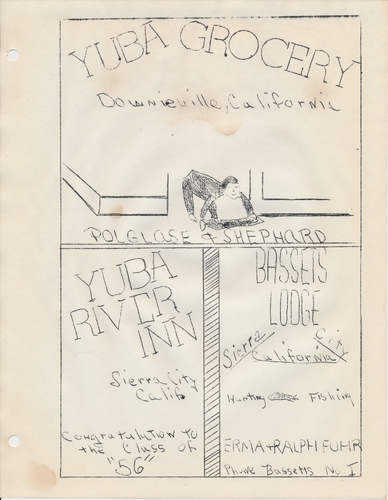 YUBA GROCERY
Downieville, California
POLGLASE & SHEPHARD
YUBA
RIVER
INN
Sierra City
Calif
Congratulation to
the Class of
"56"
BASSETS
LODGE
Sierra City
California
Hunting Fishing
ERMA + RALPH FUHR
Phone Bassetts No I